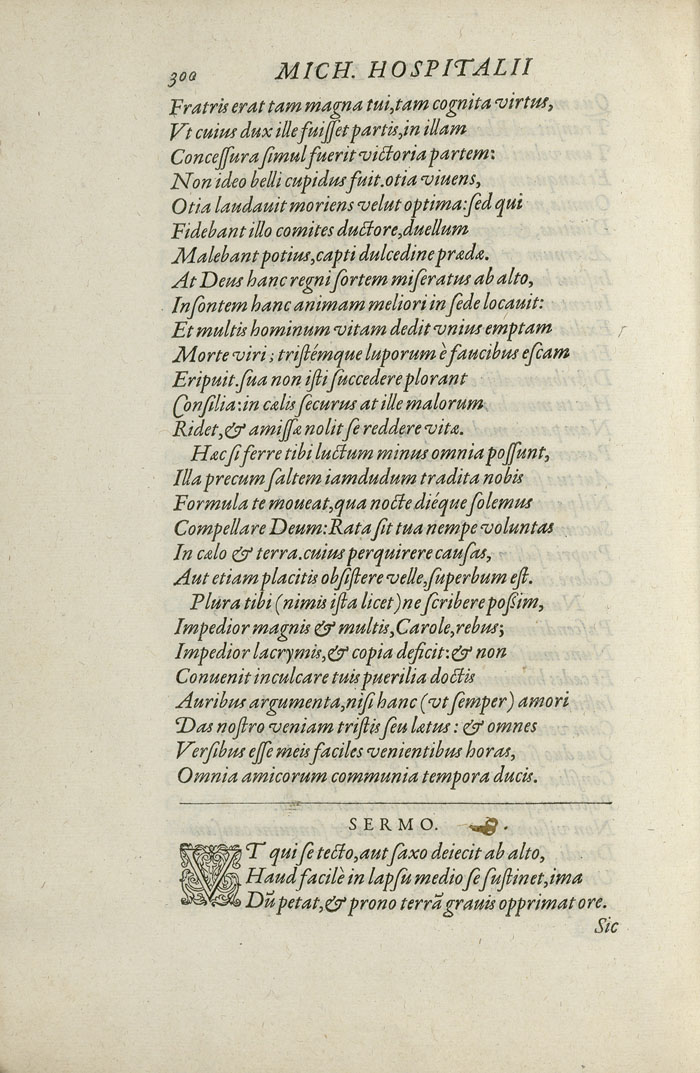 300 MICH. HOSPITALII
Fratris erat tam magna tui, tam cognita virtus,
Vt cuius dux ille fuiſſet partis, in illam
Conceſſura ſimul fuerit victoria partem:
Non ideo belli cupidus fuit. otia viuens,
Otia laudauit moriens velut optima: ſed qui
Fidebant illo comites ductore, duellum
Malebant potius, capti dulcedine prædæ.
At Deus hanc regni ſortem miſeratus ab alto,
Inſontem hanc animam meliori in ſede locauit:
Et multis hominum vitam dedit vnius emptam
Morte viri; triſtémque luporum è faucibus eſcam
Eripuit. ſua non iſti ſuccedere plorant
Conſilia: in cælis ſecurus at ille malorum
Ridet, & amiſſæ nolit ſe reddere vitæ.
Hæc ſi ferre tibi luctum minus omnia poſſunt,
Illa precum ſaltem iamdudum tradita nobis
Formula te moueat, qua nocte diéque ſolemus
Compellare Deum: Rata ſit tua nempe voluntas
In cælo & terra. cuius perquirere cauſas,
Aut etiam placitis obſiſtere velle, ſuperbum eſt.
Plura tibi (nimis iſta licet) ne ſcribere poſsim,
Impedior magnis & multis, Carole, rebus;
Impedior lacrymis, & copia deficit: & non
Conuenit inculcare tuis puerilia doctis
Auribus argumenta, niſi hanc (vt ſemper) amori
Das noſtro veniam triſtis ſeu lætus: & omnes
Verſibus eſſe meis faciles venientibus horas,
Omnia amicorum communia tempora ducis.
SERMO.
VT qui ſe tecto, aut ſaxo deiecit ab alto,
Haud facilè in lapſu medio ſe ſuſtinet, ima
Dũ petat, & prono terrã grauis opprimat ore.
Sic